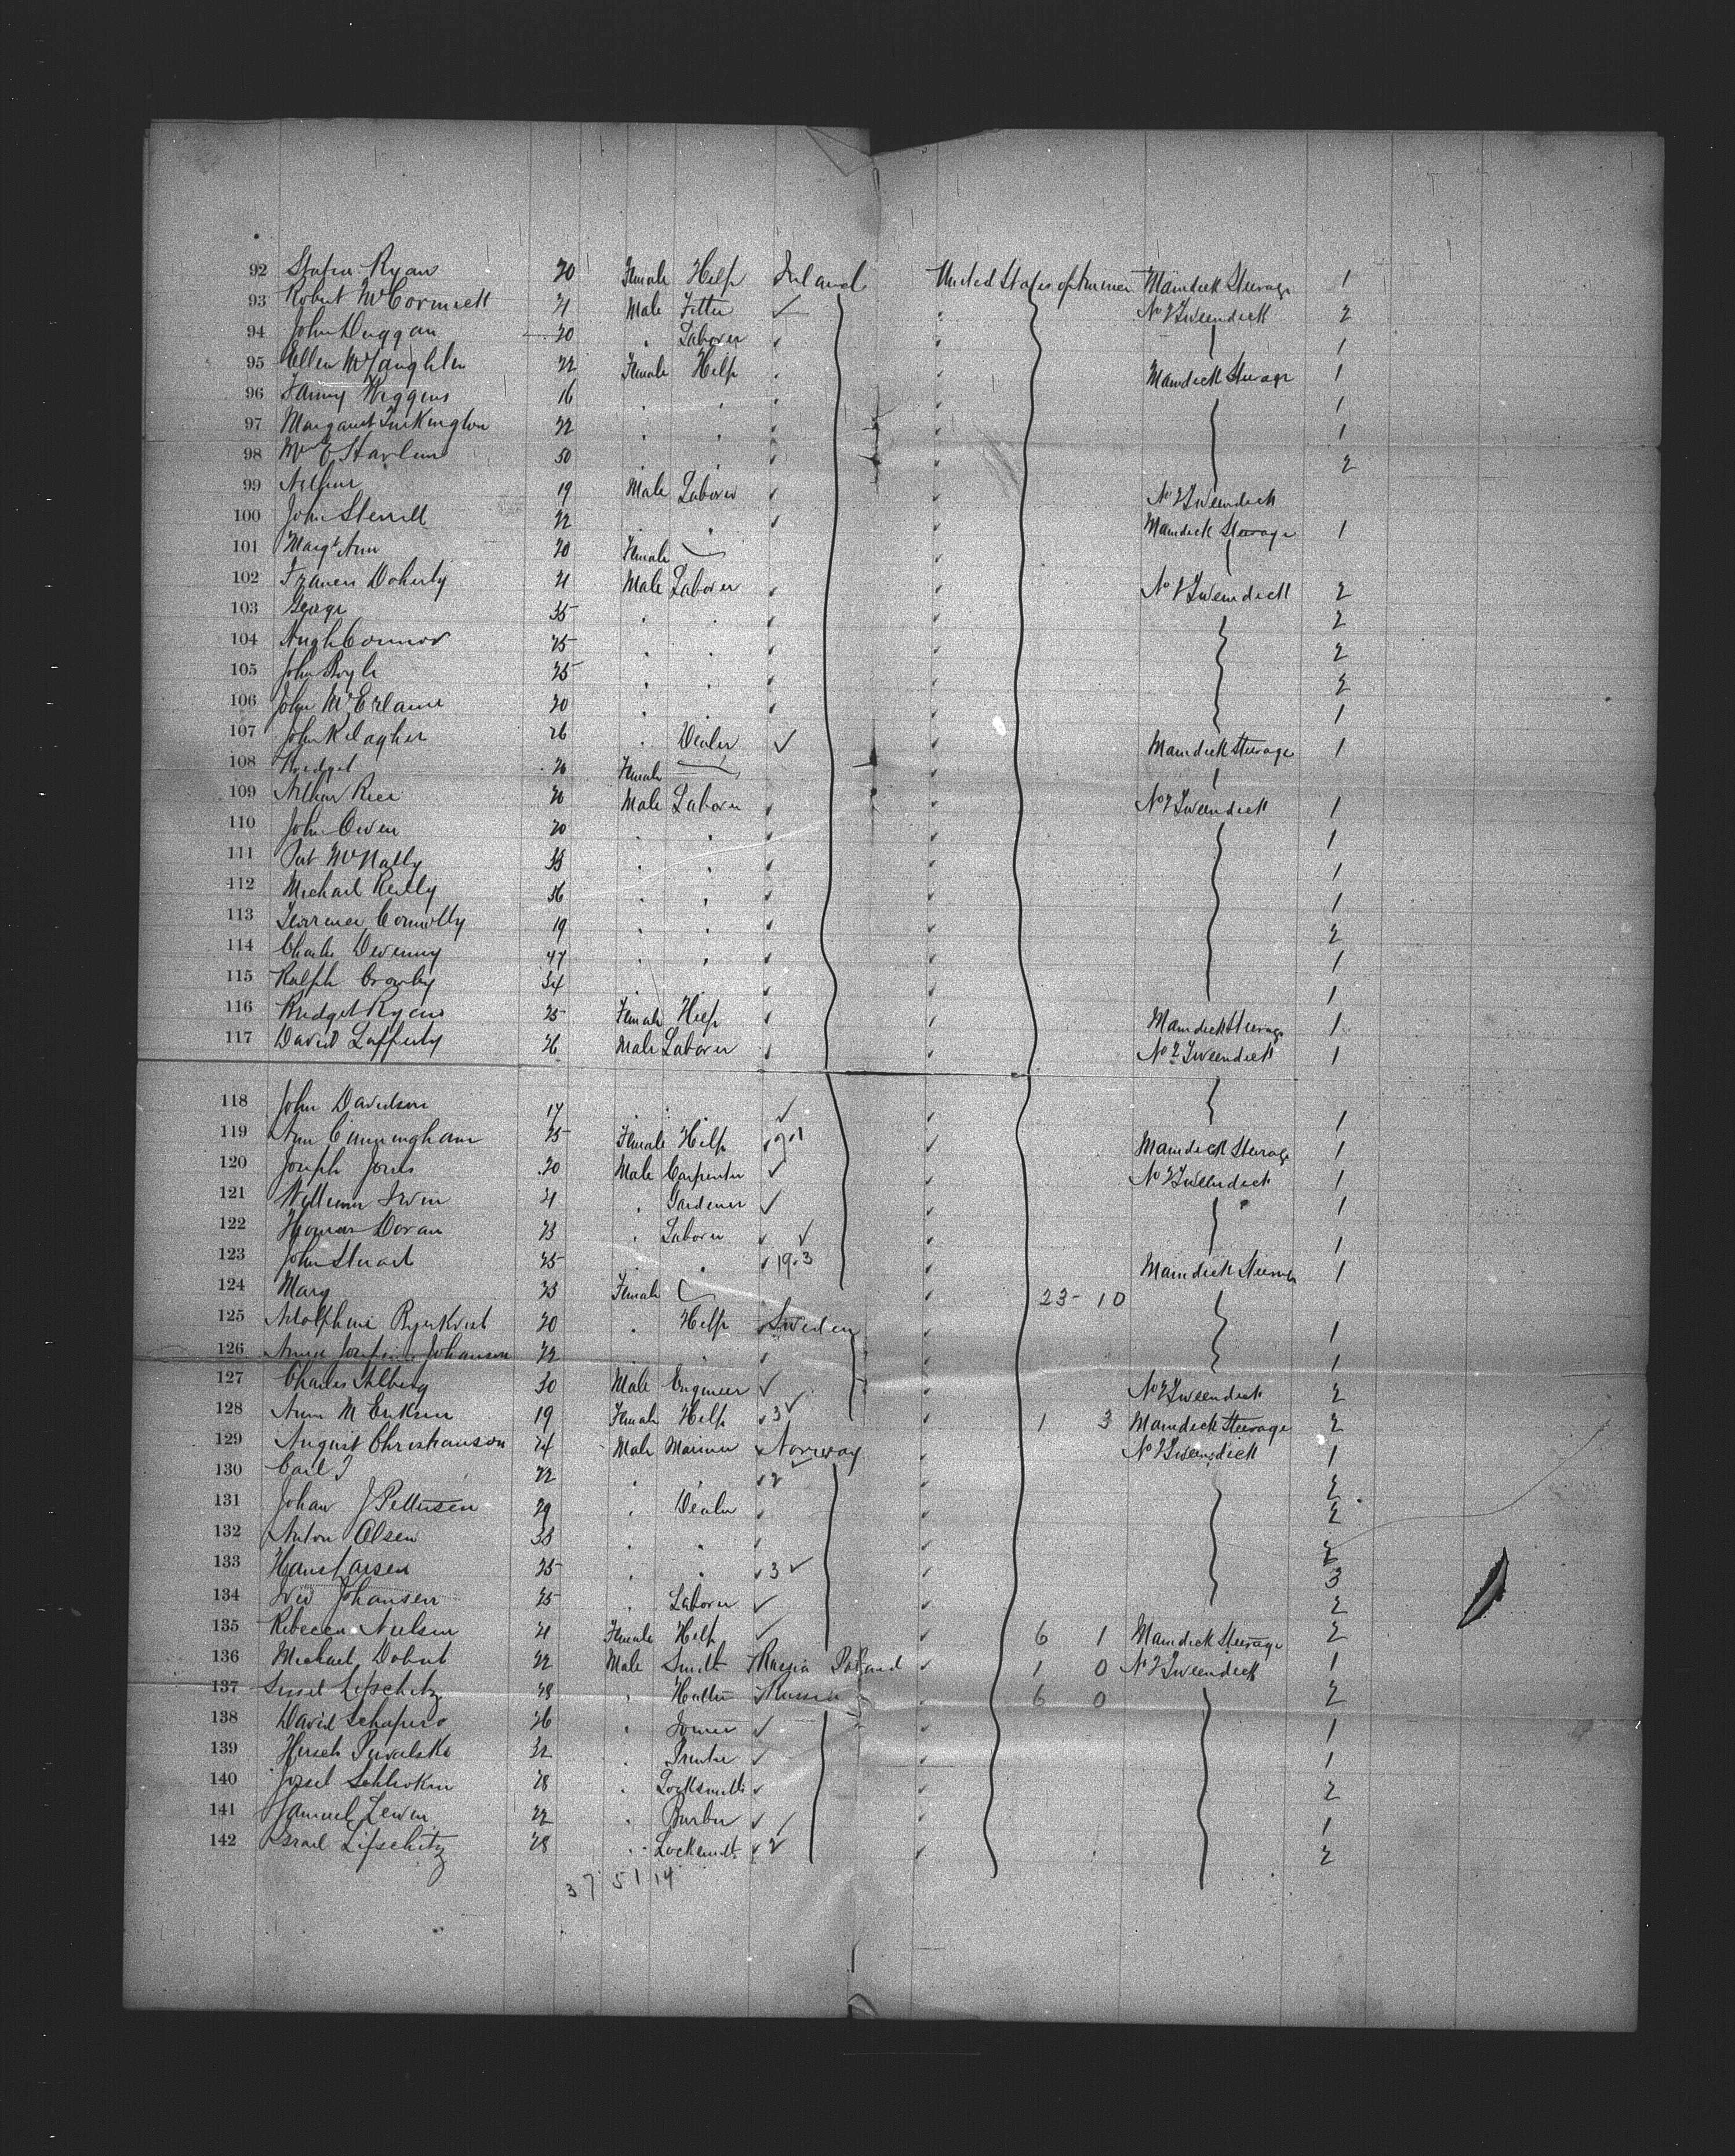 92 Ryan 20 Female Help Ireland United States of America Maindeck Steerage 1
93 Robert McCormick 21 Male Fitter No 2 Tweendeck 2
94 John Duggan 20 " Laborer 1
95 Ellen McLaughlin 22 Female Help Maindeck Steerage 1
96 Fanny Higgins 16 " " 1
97 Margaret Turkington 22 " " 1
98 Mrs 50 " " 2
99 Arthur 19 Male Laborer No 2 Tweendeck
100 John Sterrett 22 " " Maindeck Steerage 1
101 Margt Ann 20 Female
102 Francis Doherty 21 Male Laborer No 2 Tweendeck 2
103 George 35 " " 2
104 Hugh Connor 25 " " 2
105 John Boyle 25 " " 2
106 John McErlaine 20 " " 1
107 John Kelagher 26 " Dealer Maindeck Steerage 1
108 Bridget 26 Female
109 Arthur Rice 20 Male Laborer No 2 Tweendeck 1
110 John Owen 20 " " 1
111 Pat McNally 33 " " 1
112 Michael Reilly 36 " " 1
113 Terrence Connolly 19 " " 2
114 Charles Devenny 47 " " 1
115 Ralph Crowley 34 " " 1
116 Bridget Ryan 25 Female Help Maindeck Steerage 1
117 David Lafferty 26 Male Laborer No 2 Tweendeck 1
118 John Davidson 17 " " 1
119 Ann Cunningham 25 Female Help Maindeck Steerage 1
120 Joseph Jones 20 Male Carpenter No 2 Tweendeck 1
121 William Irwin 21 " Gardener 1
122 Thomas Doran 23 " Laborer 1
123 John Stuart 25 " " 19.3 Maindeck Steerage 1
124 Mary 23 Female 23-10
125 20 " Help Sweden 1
126 Anna Josefina Johanson 22 " " 1
127 Charles Ahlberg 30 Male Engineer No 2 Tweendeck 2
128 Ann M Eriksen 19 Female Help 3 1 3 Maindeck Steerage 2
129 August Christianson 24 Male Mariner Norway No 2 Tweendeck 1
130 Carl J 22 " " 2 2
131 Johan J Pettersen 29 " Dealer 2
132 Anton Olsen 33 " " 2
133 Hans Larsen 25 " " 3 3
134 Johansen 25 " Laborer 2
135 Rebecca Nielsen 21 Female Help 6 1 Maindeck Steerage 2
136 Michael 22 Male Smith Russia Poland 1 0 No 2 Tweendeck 1
137 Lifschitz 28 " Hatter Russia 6 0 2
138 David Schapiro 26 " Joiner 1
139 Hersch 22 " Printer 1
140 28 " Locksmith 2
141 Samuel Lewin 22 " Barber 1
142 Israel Lifschitz 28 " Locksmith 2 2
37 51 14